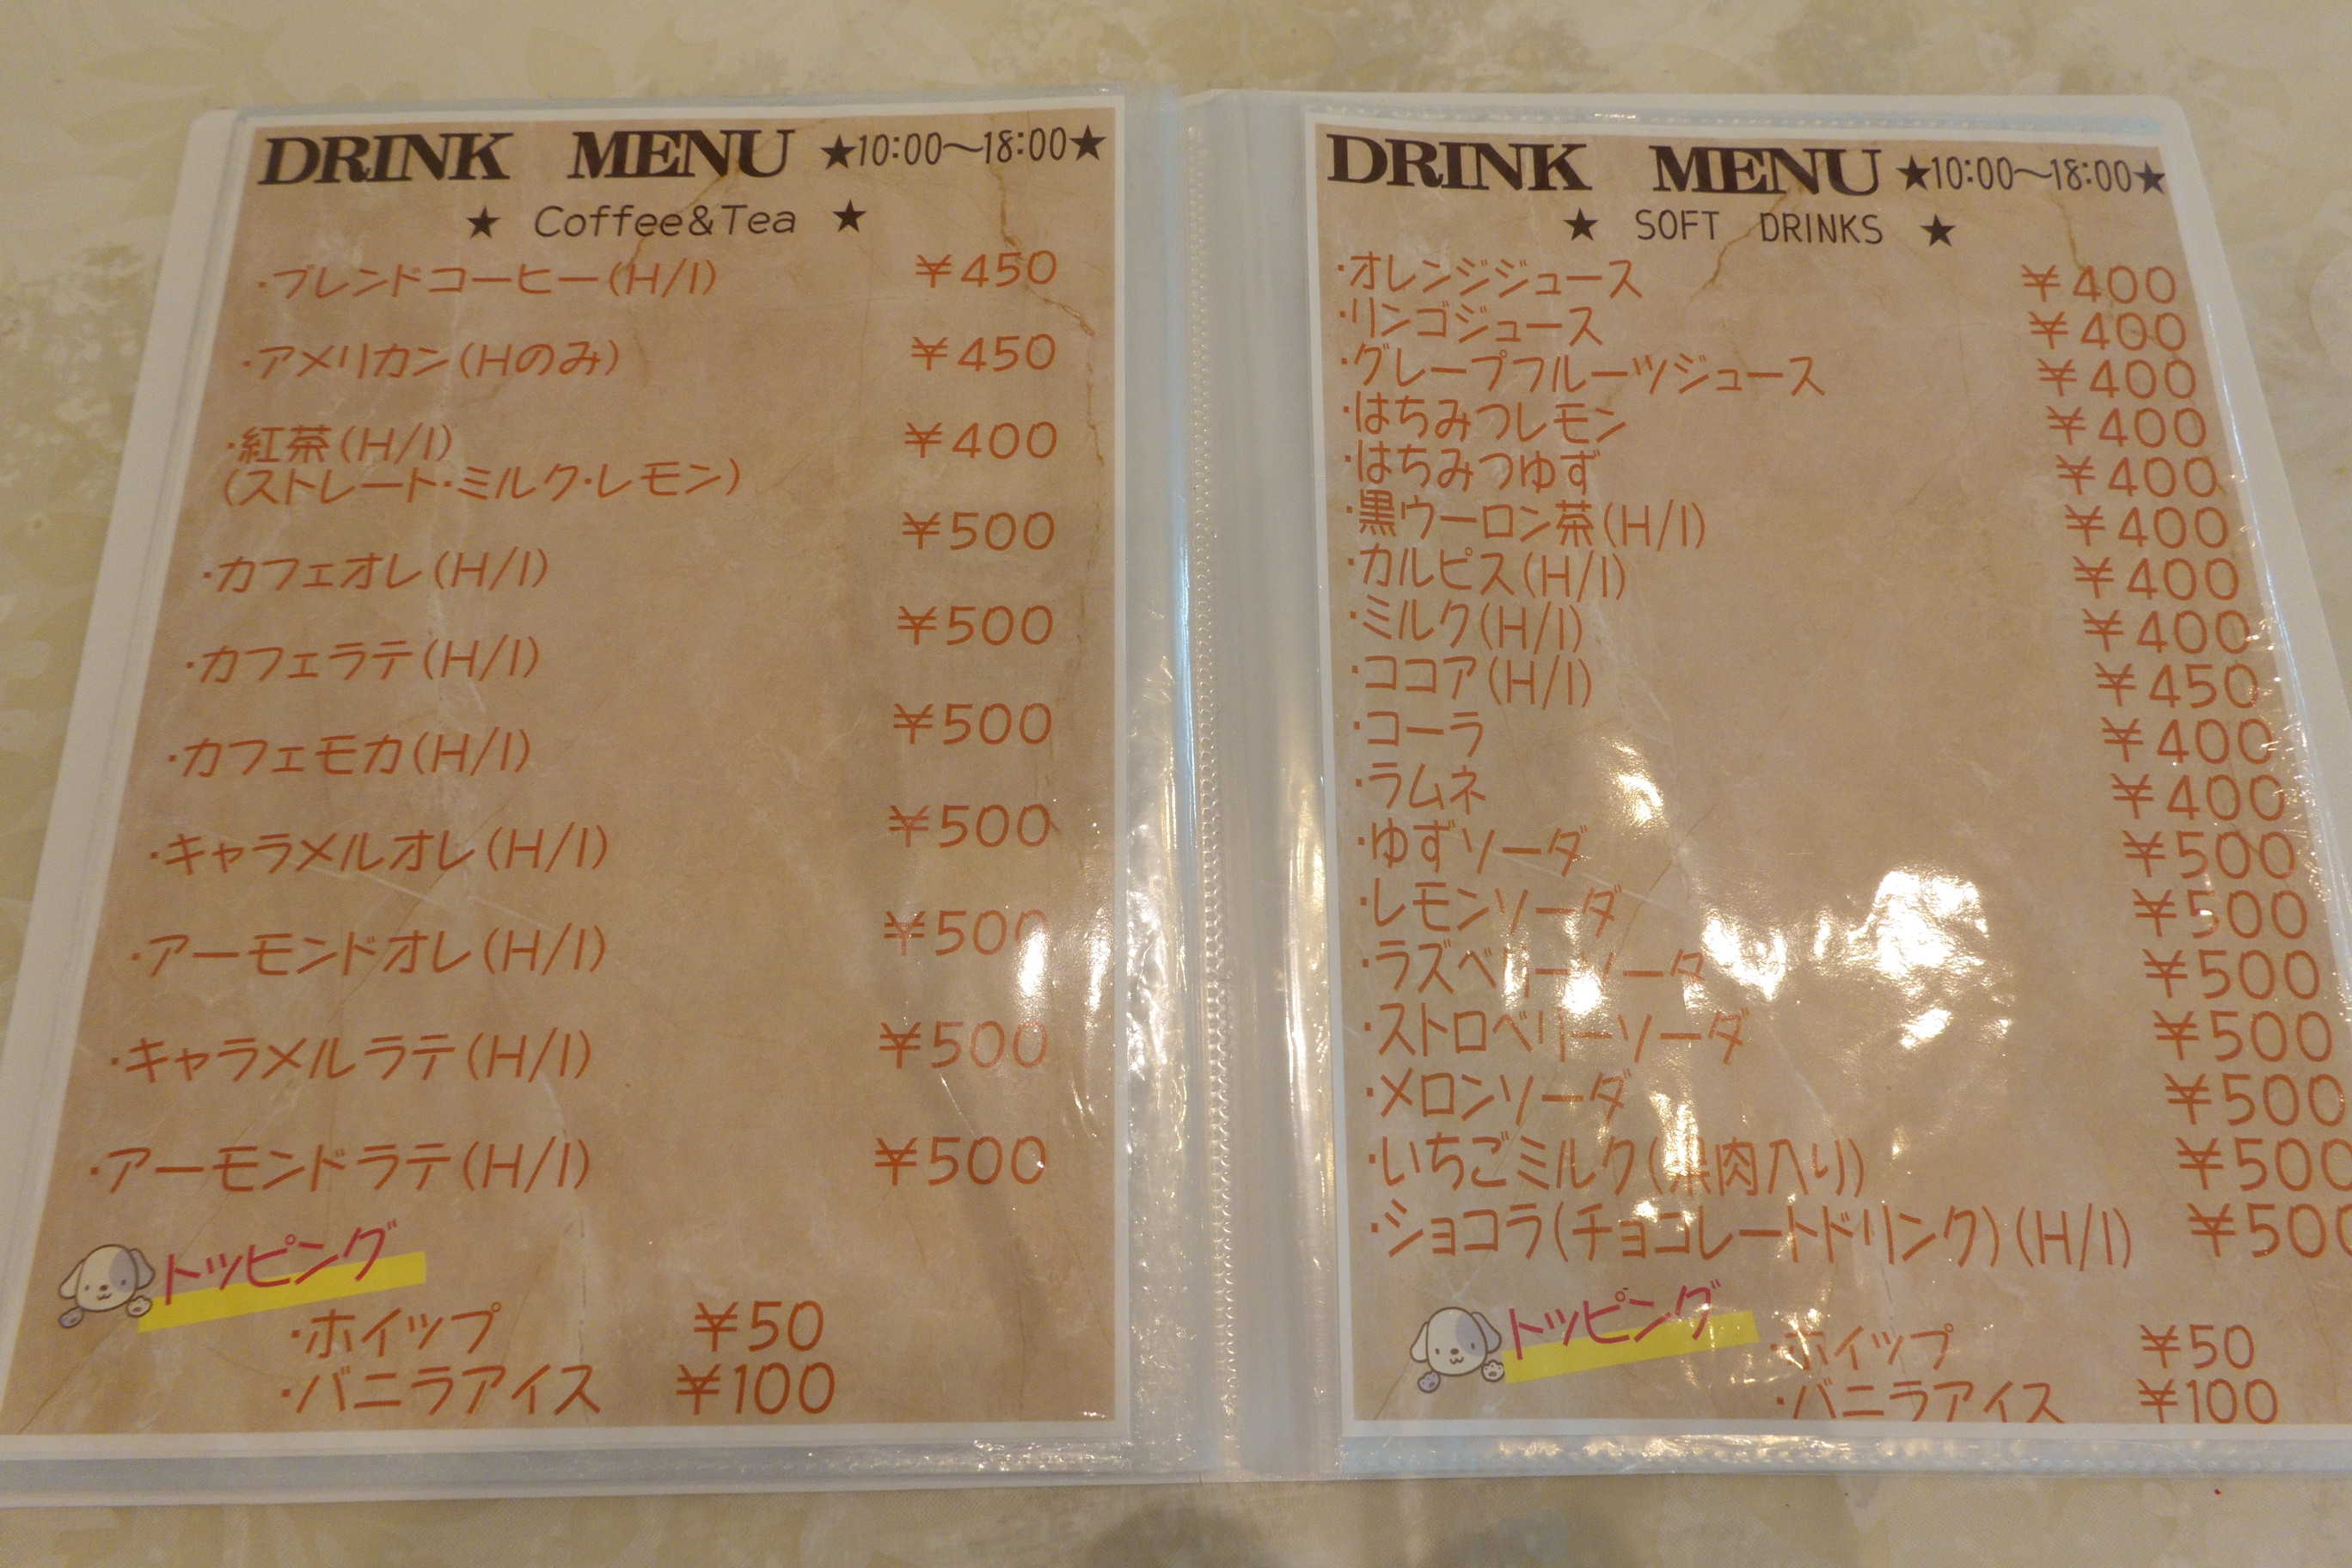 DRINK MENU ★10:00～18:00★
★ Coffee&Tea ★
・ブレンドコーヒー(H/I) ¥450
・アメリカン(Hのみ) ¥450
・紅茶(H/I) ¥400
(ストレート・ミルク・レモン)
¥500
・カフェオレ(H/I)
¥500
・カフェラテ(H/I)
¥500
・カフェモカ(H/I)
¥500
・キャラメルオレ(H/I)
¥500
・アーモンドオレ(H/I)
・キャラメルラテ(H/I) ¥500
・アーモンドラテ(H/I) ¥500
トッピング
・ホイップ ¥50
・バニラアイス ¥100
DRINK MENU ★10:00～18:00★
★ SOFT DRINKS ★
・オレンジジュース ¥400
・リンゴジュース ¥400
・グレープフルーツジュース ¥400
・はちみつレモン ¥400
・はちみつゆず ¥400
・黒ウーロン茶(H/I) ¥400
・カルピス(H/I) ¥400
・ミルク(H/I) ¥400
・ココア(H/I) ¥450
・コーラ ¥400
・ラムネ ¥400
・ゆずソーダ ¥500
・レモンソーダ ¥500
・ラズベリーソーダ ¥500
・ストロベリーソーダ ¥500
・メロンソーダ ¥500
・いちごミルク(果肉入り) ¥500
・ショコラ(チョコレートドリンク)(H/I) ¥500
トッピング
・ホイップ ¥50
・バニラアイス ¥100